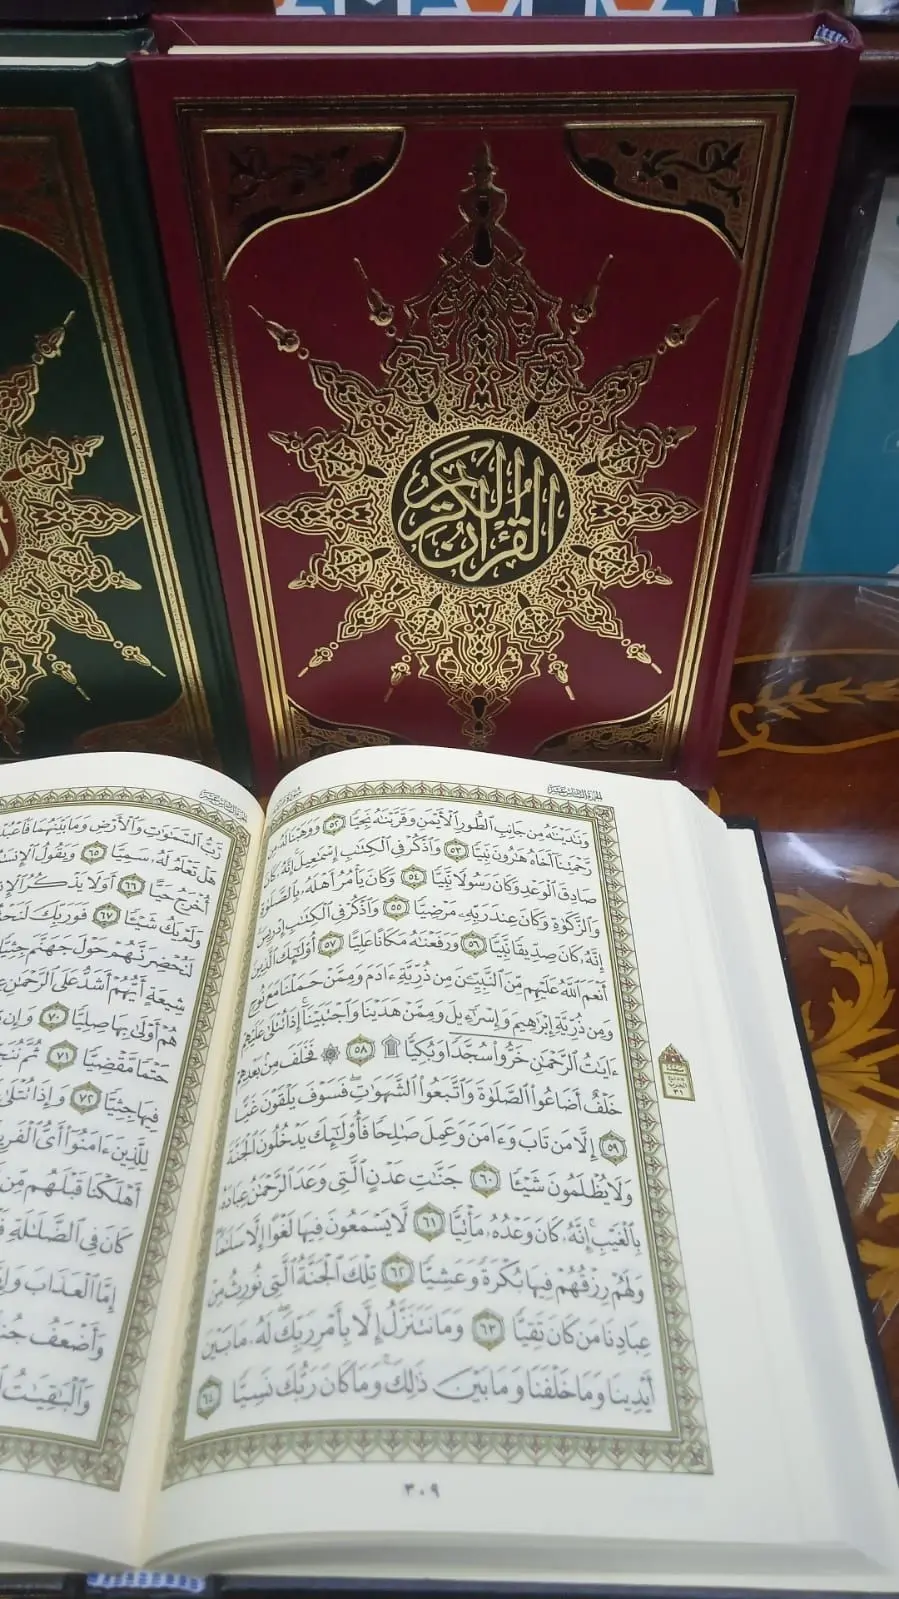 القرءان الكريم
الجزء السادس عشر
وَنَٰدَيْنَٰهُ مِن جَانِبِ ٱلطُّورِ ٱلْأَيْمَنِ وَقَرَّبْنَٰهُ نَجِيًّا ٥٢ وَوَهَبْنَا لَهُۥ مِن
رَّحْمَتِنَآ أَخَاهُ هَٰرُونَ نَبِيًّا ٥٣ وَٱذْكُرْ فِى ٱلْكِتَٰبِ إِسْمَٰعِيلَ ۚ إِنَّهُۥ كَانَ
صَادِقَ ٱلْوَعْدِ وَكَانَ رَسُولًا نَّبِيًّا ٥٤ وَكَانَ يَأْمُرُ أَهْلَهُۥ بِٱلصَّلَوٰةِ
وَٱلزَّكَوٰةِ وَكَانَ عِندَ رَبِّهِۦ مَرْضِيًّا ٥٥ وَٱذْكُرْ فِى ٱلْكِتَٰبِ إِدْرِيسَ ۚ
إِنَّهُۥ كَانَ صِدِّيقًا نَّبِيًّا ٥٦ وَرَفَعْنَٰهُ مَكَانًا عَلِيًّا ٥٧ أُو۟لَٰٓئِكَ ٱلَّذِينَ
أَنْعَمَ ٱللَّهُ عَلَيْهِم مِّنَ ٱلنَّبِيِّـۧنَ مِن ذُرِّيَّةِ ءَادَمَ وَمِمَّنْ حَمَلْنَا مَعَ نُوحٍ
وَمِن ذُرِّيَّةِ إِبْرَٰهِيمَ وَإِسْرَٰٓءِيلَ وَمِمَّنْ هَدَيْنَا وَٱجْتَبَيْنَآ ۚ إِذَا تُتْلَىٰ عَلَيْهِمْ
ءَايَٰتُ ٱلرَّحْمَٰنِ خَرُّوا۟ سُجَّدًا وَبُكِيًّا ۩ ٥٨ ۞ فَخَلَفَ مِنۢ بَعْدِهِمْ
خَلْفٌ أَضَاعُوا۟ ٱلصَّلَوٰةَ وَٱتَّبَعُوا۟ ٱلشَّهَوَٰتِ ۖ فَسَوْفَ يَلْقَوْنَ غَيًّا
٥٩ إِلَّا مَن تَابَ وَءَامَنَ وَعَمِلَ صَٰلِحًا فَأُو۟لَٰٓئِكَ يَدْخُلُونَ ٱلْجَنَّةَ
وَلَا يُظْلَمُونَ شَيْـًٔا ٦٠ جَنَّٰتِ عَدْنٍ ٱلَّتِى وَعَدَ ٱلرَّحْمَٰنُ عِبَادَهُۥ
بِٱلْغَيْبِ ۚ إِنَّهُۥ كَانَ وَعْدُهُۥ مَأْتِيًّا ٦١ لَّا يَسْمَعُونَ فِيهَا لَغْوًا إِلَّا سَلَٰمًا ۖ
وَلَهُمْ رِزْقُهُمْ فِيهَا بُكْرَةً وَعَشِيًّا ٦٢ تِلْكَ ٱلْجَنَّةُ ٱلَّتِى نُورِثُ مِنْ
عِبَادِنَا مَن كَانَ تَقِيًّا ٦٣ وَمَا نَتَنَزَّلُ إِلَّا بِأَمْرِ رَبِّكَ ۖ لَهُۥ مَا بَيْنَ
أَيْدِينَا وَمَا خَلْفَنَا وَمَا بَيْنَ ذَٰلِكَ ۚ وَمَا كَانَ رَبُّكَ نَسِيًّا ٦٤
٣٠٩
رَّبُّ ٱلسَّمَٰوَٰتِ وَٱلْأَرْضِ وَمَا بَيْنَهُمَا فَٱعْبُدْ
هَلْ تَعْلَمُ لَهُۥ سَمِيًّا ٦٥ وَيَقُولُ
أُخْرَجُ حَيًّا ٦٦ أَوَلَا يَذْكُرُ
وَلَمْ يَكُ شَيْـًٔا ٦٧ فَوَرَبِّكَ
لَنُحْضِرَنَّهُمْ حَوْلَ جَهَنَّمَ جِثِيًّا
شِيعَةٍ أَيُّهُمْ أَشَدُّ عَلَى ٱلرَّحْمَٰنِ
هُمْ أَوْلَىٰ بِهَا صِلِيًّا ٧٠ وَإِن
حَتْمًا مَّقْضِيًّا ٧١ ثُمَّ
فِيهَا جِثِيًّا ٧٢ وَإِذَا تُتْلَىٰ
لِلَّذِينَ ءَامَنُوٓا۟ أَىُّ
أَهْلَكْنَا قَبْلَهُم مِّن
كَانَ فِى ٱلضَّلَٰلَةِ
إِمَّا ٱلْعَذَابَ
وَأَضْعَفُ
وَٱلْبَٰقِيَٰتُ